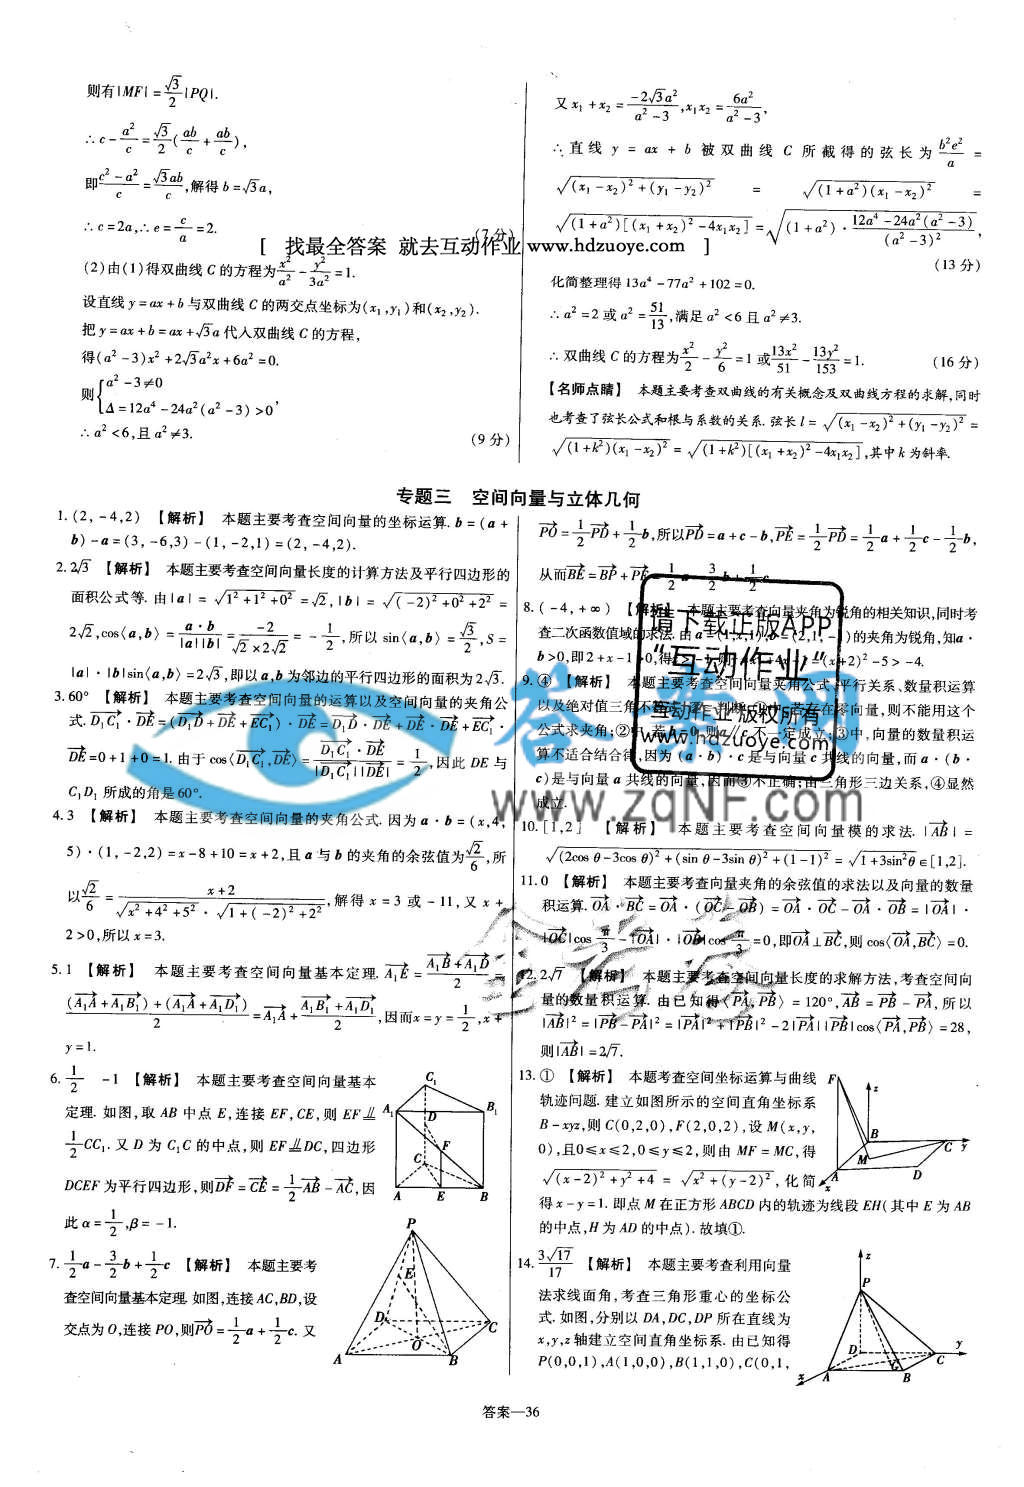 则有|MF|=√3/2|PQ|.
∴c-a²/c=√3/2(ab/c+ab/c),
即(c²-a²)/c=√3ab/c,解得b=√3a,
∴c=2a,∴e=c/a=2. (7分)
(2)由(1)得双曲线C的方程为x²/a²-y²/3a²=1.
设直线y=ax+b与双曲线C的两交点坐标为(x₁,y₁)和(x₂,y₂).
把y=ax+b=ax+√3a代入双曲线C的方程,
得(a²-3)x²+2√3a²x+6a²=0.
则{a²-3≠0
Δ=12a⁴-24a²(a²-3)>0,
∴a²<6,且a²≠3. (9分)
又x₁+x₂=-2√3a²/(a²-3),x₁x₂=6a²/(a²-3),
∴直线y=ax+b被双曲线C所截得的弦长为b²e²/a=
√((x₁-x₂)²+(y₁-y₂)²) = √((1+a²)(x₁-x₂)²) =
√((1+a²)[(x₁+x₂)²-4x₁x₂])=√((1+a²)·(12a⁴-24a²(a²-3))/(a²-3)²),
(13分)
化简整理得13a⁴-77a²+102=0.
∴a²=2或a²=51/13,满足a²<6且a²≠3.
∴双曲线C的方程为x²/2-y²/6=1或13x²/51-13y²/153=1. (16分)
【名师点睛】 本题主要考查双曲线的有关概念及双曲线方程的求解,同时
也考查了弦长公式和根与系数的关系.弦长l=√((x₁-x₂)²+(y₁-y₂)²)=
√((1+k²)(x₁-x₂)²)=√((1+k²)[(x₁+x₂)²-4x₁x₂]),其中k为斜率.
[ 找最全答案 就去互动作业 www.hdzuoye.com ]
专题三 空间向量与立体几何
1.(2,-4,2) 【解析】 本题主要考查空间向量的坐标运算.b=(a+
b)-a=(3,-6,3)-(1,-2,1)=(2,-4,2).
2.2√3 【解析】 本题主要考查空间向量长度的计算方法及平行四边形的
面积公式等.由|a|=√(1²+1²+0²)=√2,|b|=√((-2)²+0²+2²)=
2√2,cos⟨a,b⟩=a·b/|a||b|=-2/(√2×2√2)=-1/2,所以sin⟨a,b⟩=√3/2,S=
|a|·|b|sin⟨a,b⟩=2√3,即以a,b为邻边的平行四边形的面积为2√3.
3.60° 【解析】 本题主要考查空间向量的运算以及空间向量的夹角公
式.D₁C₁·DE=(D₁D+DE+EC₁)·DE=D₁D·DE+DE·DE+EC₁·
DE=0+1+0=1.由于cos⟨D₁C₁,DE⟩=D₁C₁·DE/|D₁C₁||DE|=1/2,因此DE与
C₁D₁所成的角是60°.
4.3 【解析】 本题主要考查空间向量的夹角公式.因为a·b=(x,4,
5)·(1,-2,2)=x-8+10=x+2,且a与b的夹角的余弦值为√2/6,所
以√2/6=(x+2)/(√(x²+4²+5²)·√(1+(-2)²+2²)),解得x=3或-11,又x+
2>0,所以x=3.
5.1 【解析】 本题主要考查空间向量基本定理.A₁E=(A₁B+A₁D)/2=
((A₁A+A₁B₁)+(A₁A+A₁D₁))/2=A₁A+(A₁B₁+A₁D₁)/2,因而x=y=1/2,x+
y=1.
6.1/2 -1 【解析】 本题主要考查空间向量基本
定理.如图,取AB中点E,连接EF,CE,则EF∥=
1/2CC₁.又D为C₁C的中点,则EF∥=DC,四边形
DCEF为平行四边形,则DF=CE=1/2AB-AC,因
此α=1/2,β=-1.
C₁
A₁ D B₁
F
C
A E B
7.1/2a-3/2b+1/2c 【解析】 本题主要考
查空间向量基本定理.如图,连接AC,BD,设
交点为O,连接PO,则PO=1/2a+1/2c.又
P
E
D C
O
A B
PO=1/2PD+1/2b,所以PD=a+c-b,PE=1/2PD=1/2a+1/2c-1/2b,
从而BE=BP+PE=1/2a-3/2b+1/2c.
8.(-4,+∞) 【解析】 本题主要考查向量夹角为锐角的相关知识,同时考
查二次函数值域的求法.由a=(1,x,1),b=(2,1,-1)的夹角为锐角,知a·
b>0,即2+x-1>0,得x>-1,则 (x+2)²-5>-4.
9.④ 【解析】 本题主要考查空间向量夹角公式、平行关系、数量积运算
以及绝对值三角不等式 判断.①中,若存在零向量,则不能用这个
公式求夹角;②中,若b=0,则a∥c不一定成立;③中,向量的数量积运
算不适合结合律,因为(a·b)·c是与向量c共线的向量,而a·(b·
c)是与向量a共线的向量,因而③不正确;由三角形三边关系,④显然
成立.
10.[1,2] 【解析】 本题主要考查空间向量模的求法.|AB|=
√((2cosθ-3cosθ)²+(sinθ-3sinθ)²+(1-1)²)=√(1+3sin²θ)∈[1,2].
11.0 【解析】 本题主要考查向量夹角的余弦值的求法以及向量的数量
积运算.OA·BC=OA·(OC-OB)=OA·OC-OA·OB=|OA|·
|OC|cosπ/3-|OA|·|OB|cosπ/3=0,即OA⊥BC,则cos⟨OA,BC⟩=0.
12.2√7 【解析】 本题主要考查空间向量长度的求解方法,考查空间向
量的数量积运算.由已知得⟨PA,PB⟩=120°,AB=PB-PA,所以
|AB|²=|PB-PA|²=|PA|²+|PB|²-2|PA||PB|cos⟨PA,PB⟩=28,
则|AB|=2√7.
13.① 【解析】 本题考查空间坐标运算与曲线
轨迹问题.建立如图所示的空间直角坐标系
B-xyz,则C(0,2,0),F(2,0,2),设M(x,y,
0),且0≤x≤2,0≤y≤2,则由MF=MC,得
√((x-2)²+y²+4)=√(x²+(y-2)²),化简
得x-y=1.即点M在正方形ABCD内的轨迹为线段EH(其中E为AB
的中点,H为AD的中点).故填①.
F z
B C y
M
x A D
14.3√17/17 【解析】 本题主要考查利用向量
法求线面角,考查三角形重心的坐标公
式.如图,分别以DA,DC,DP所在直线为
x,y,z轴建立空间直角坐标系.由已知得
P(0,0,1),A(1,0,0),B(1,1,0),C(0,1,
z
P
D G C y
x A B
请下载正版APP
“互动作业”
互动作业 版权所有
www.hdzuoye.com
www.zqNF.com
金考卷
答案—36